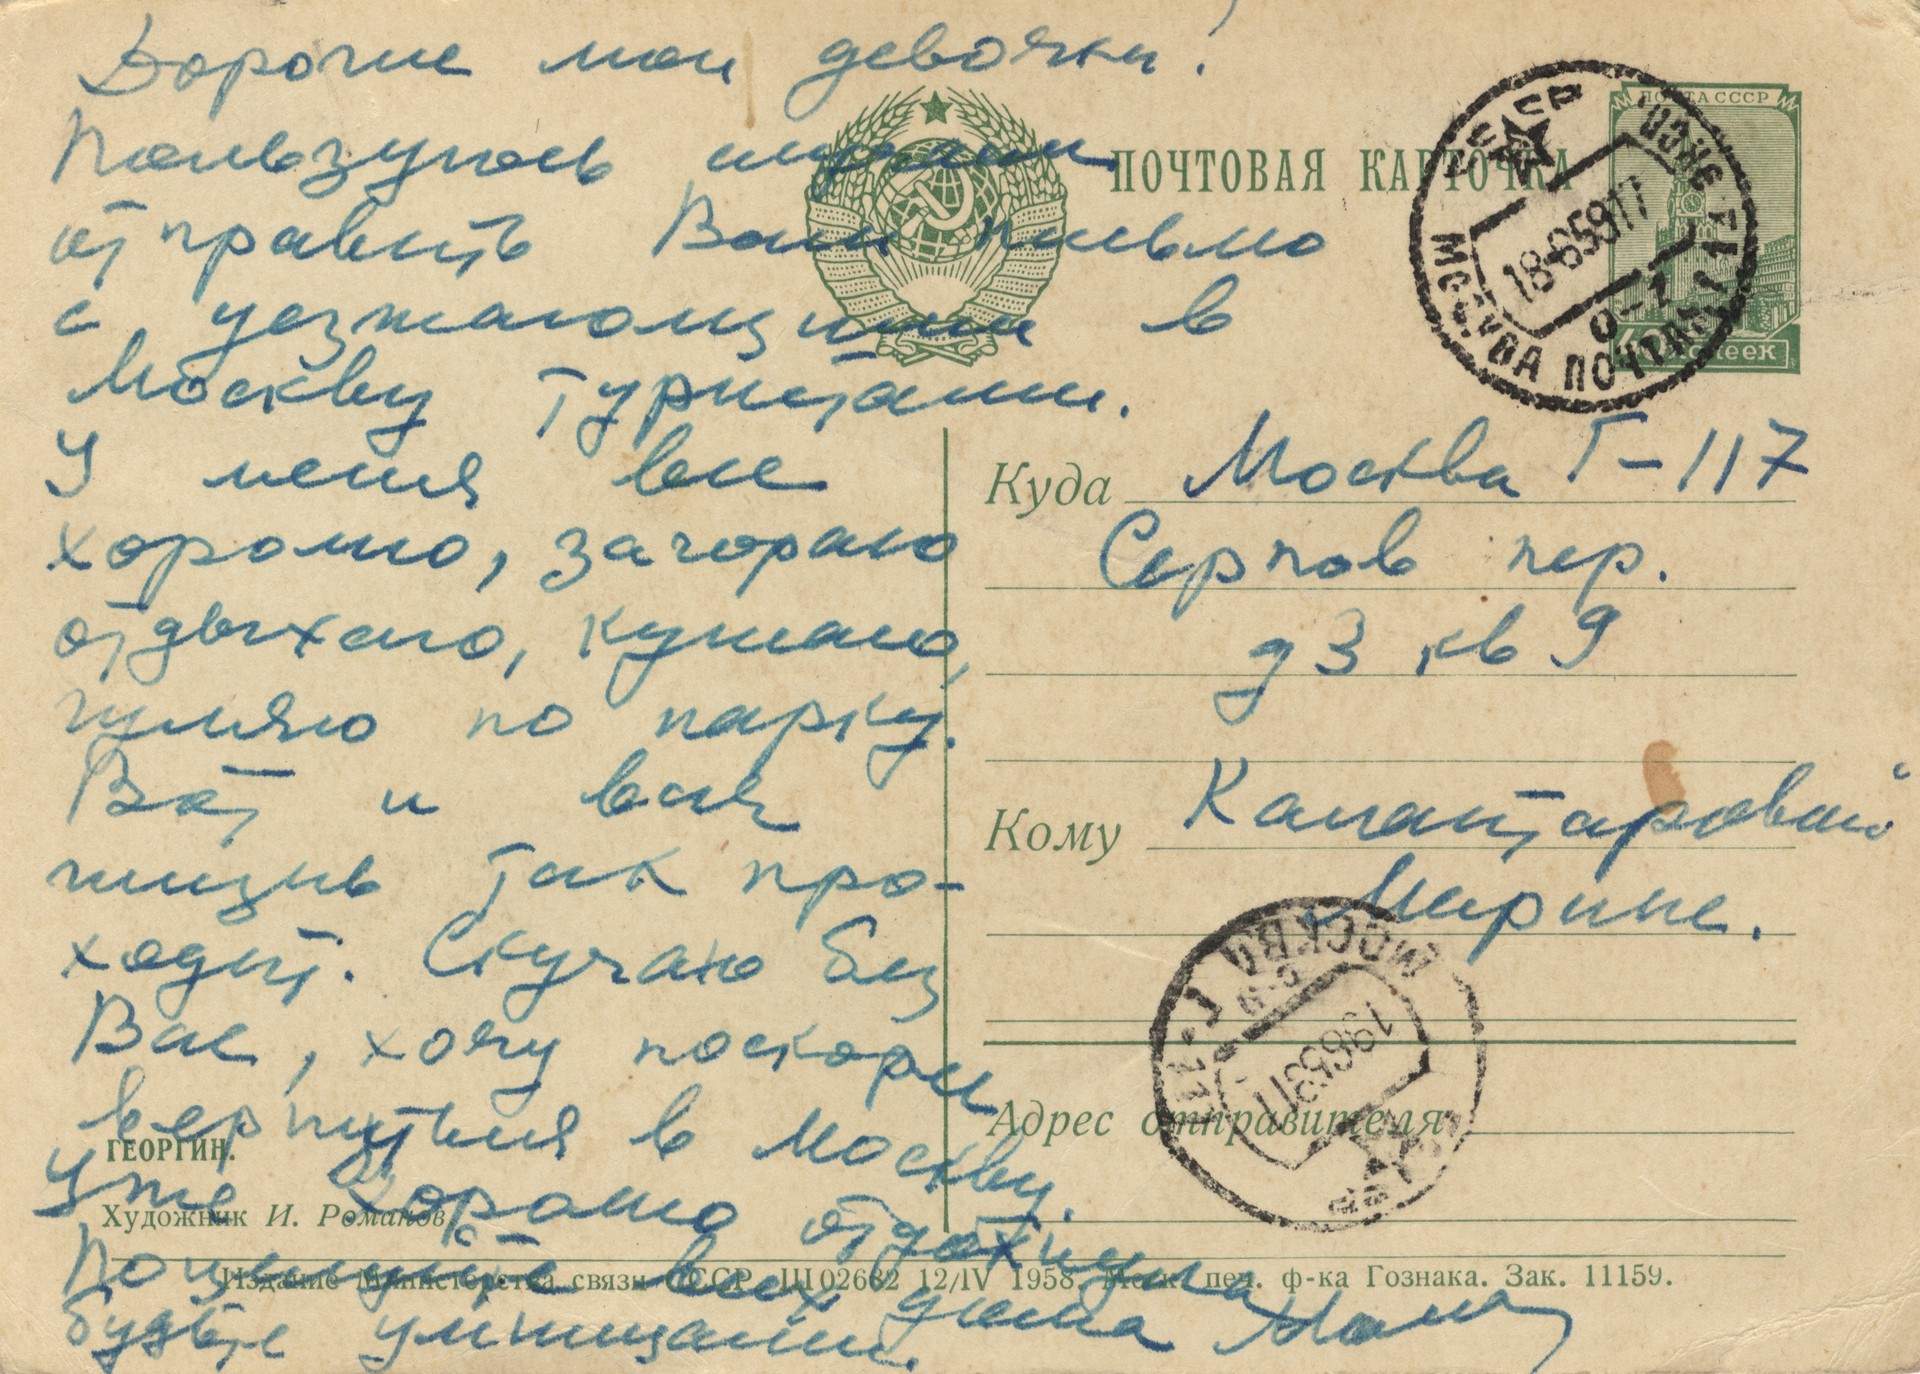 Дорогие мои девочки!
Пользуюсь случаем
отправить Вам письмо
с уезжающими в
Москву туристами.
У меня все
хорошо, загораю
отдыхаю, кушаю,
гуляю по парку.
Вот и вся
жизнь так про-
ходит. Скучаю без
Вас, хочу поскорей
вернуться в Москву.
Уже хорошо отдохнула
Поцелуйте всех дома Мама
будьте умницами.
ПОЧТОВАЯ КАРТОЧКА
ПОЧТА СССР
40 копеек
СССР
МОСКВА ПОЧТАМТ
18-65917
Куда Москва Г-117
Серпов пер.
д 3 кв 9
Кому Калантаровой
Марине.
МОСКВА Г-117
Адрес отправителя
ГЕОРГИН.
Художник И. Романов
Издание Министерства связи СССР. Ш02682 12/IV 1958. Моск. печ. ф-ка Гознака. Зак. 11159.